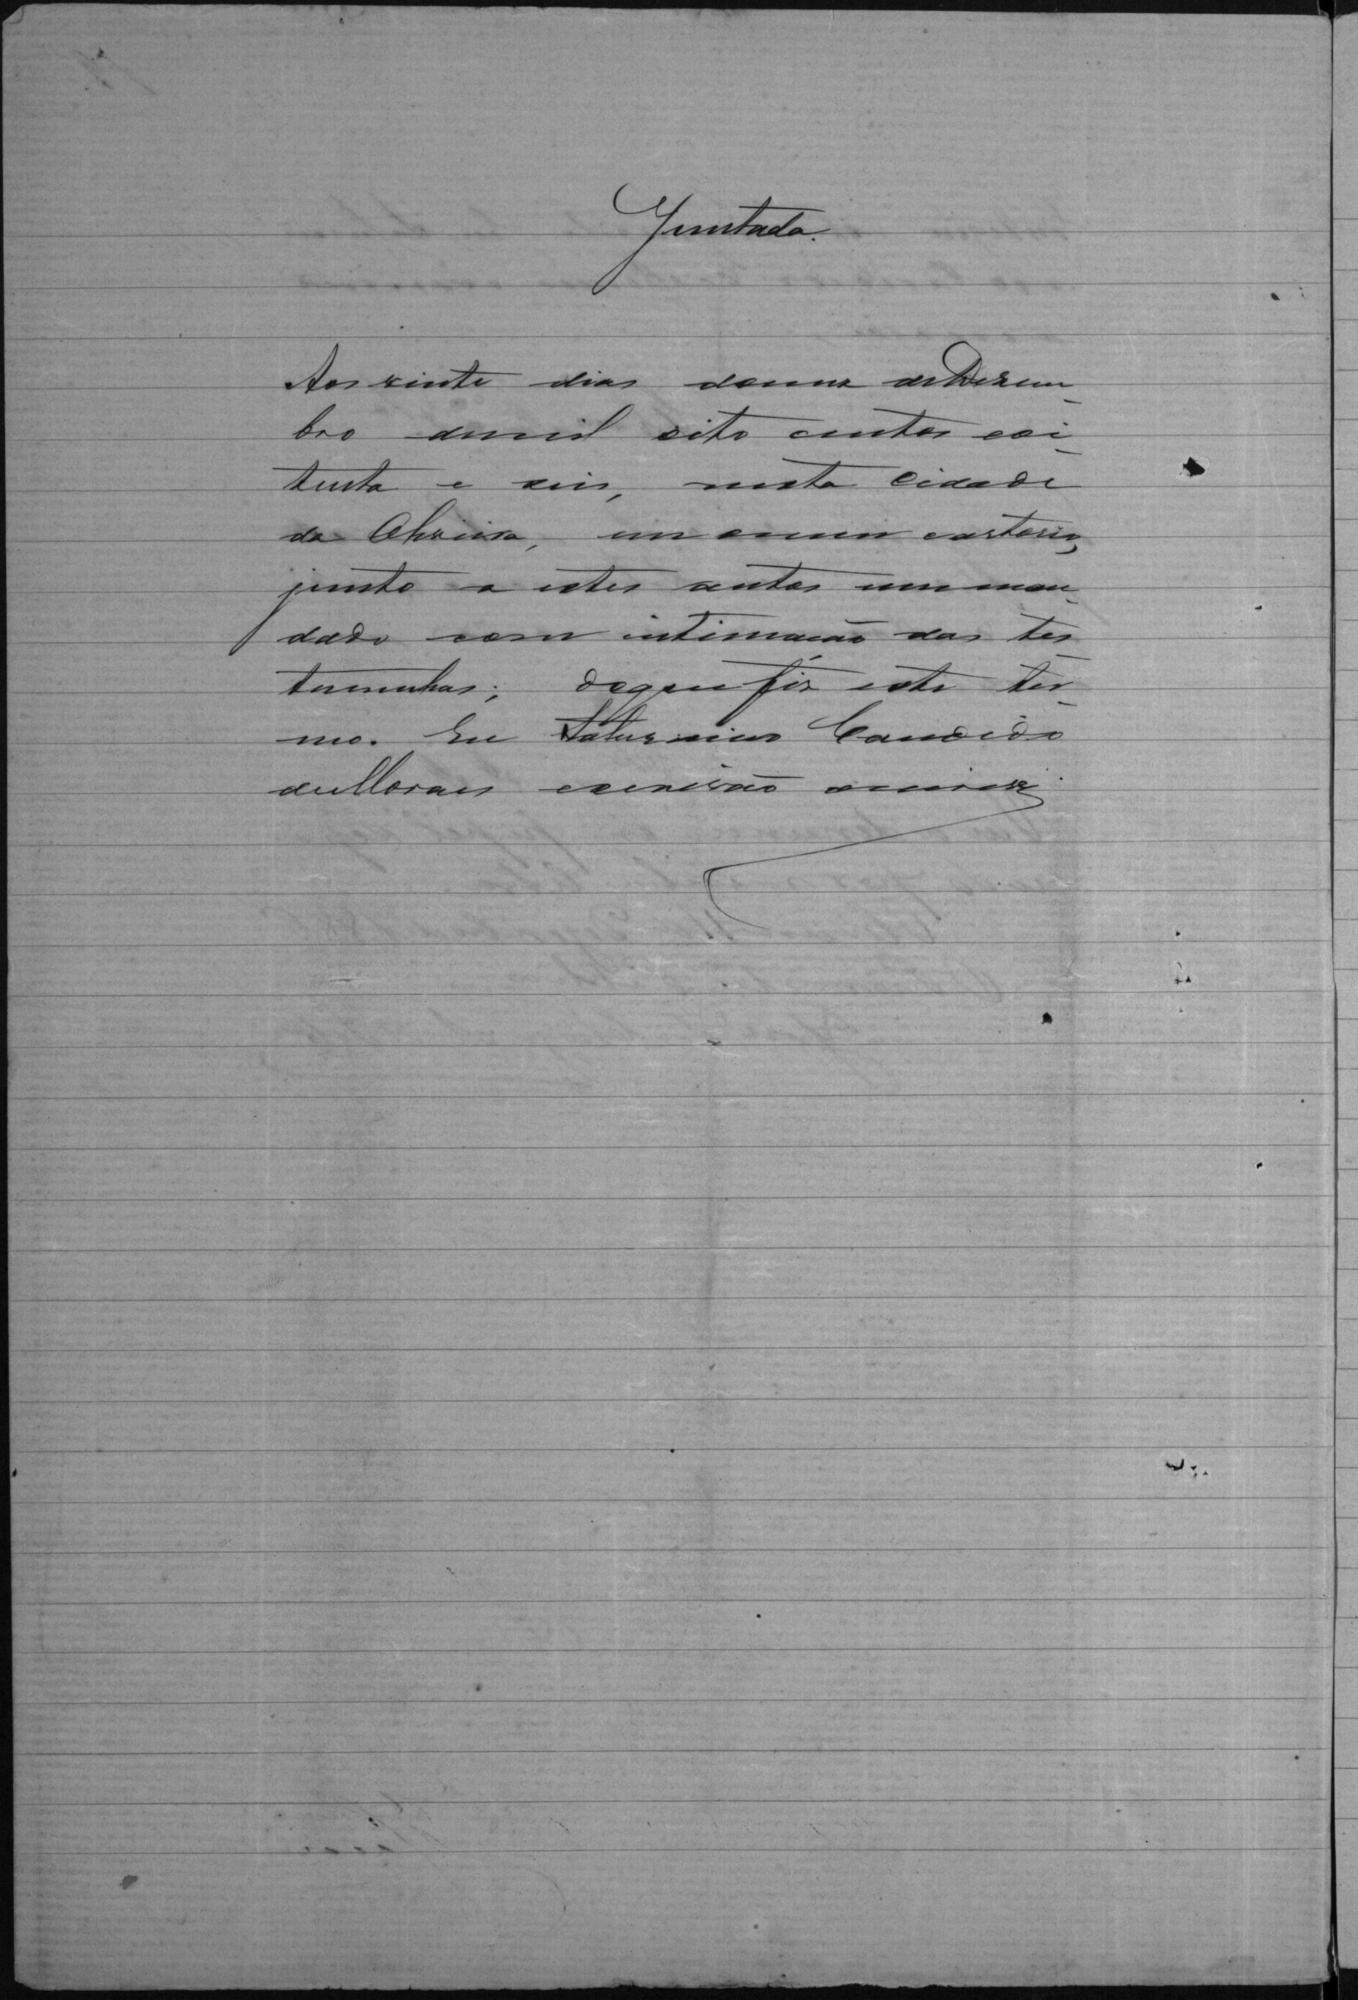 Juntada.
Aos vinte dias domez de Dezem
bro demil oito centos eoi
tenta e seis, nesta Cidade
da Oliveira, em omeu cartorio,
junto a estes autos um man
dado com intimação das tes
temunhas; doque fiz este ter
mo. Eu Saturnino Candido
de Moraes escrivão oescrevi.